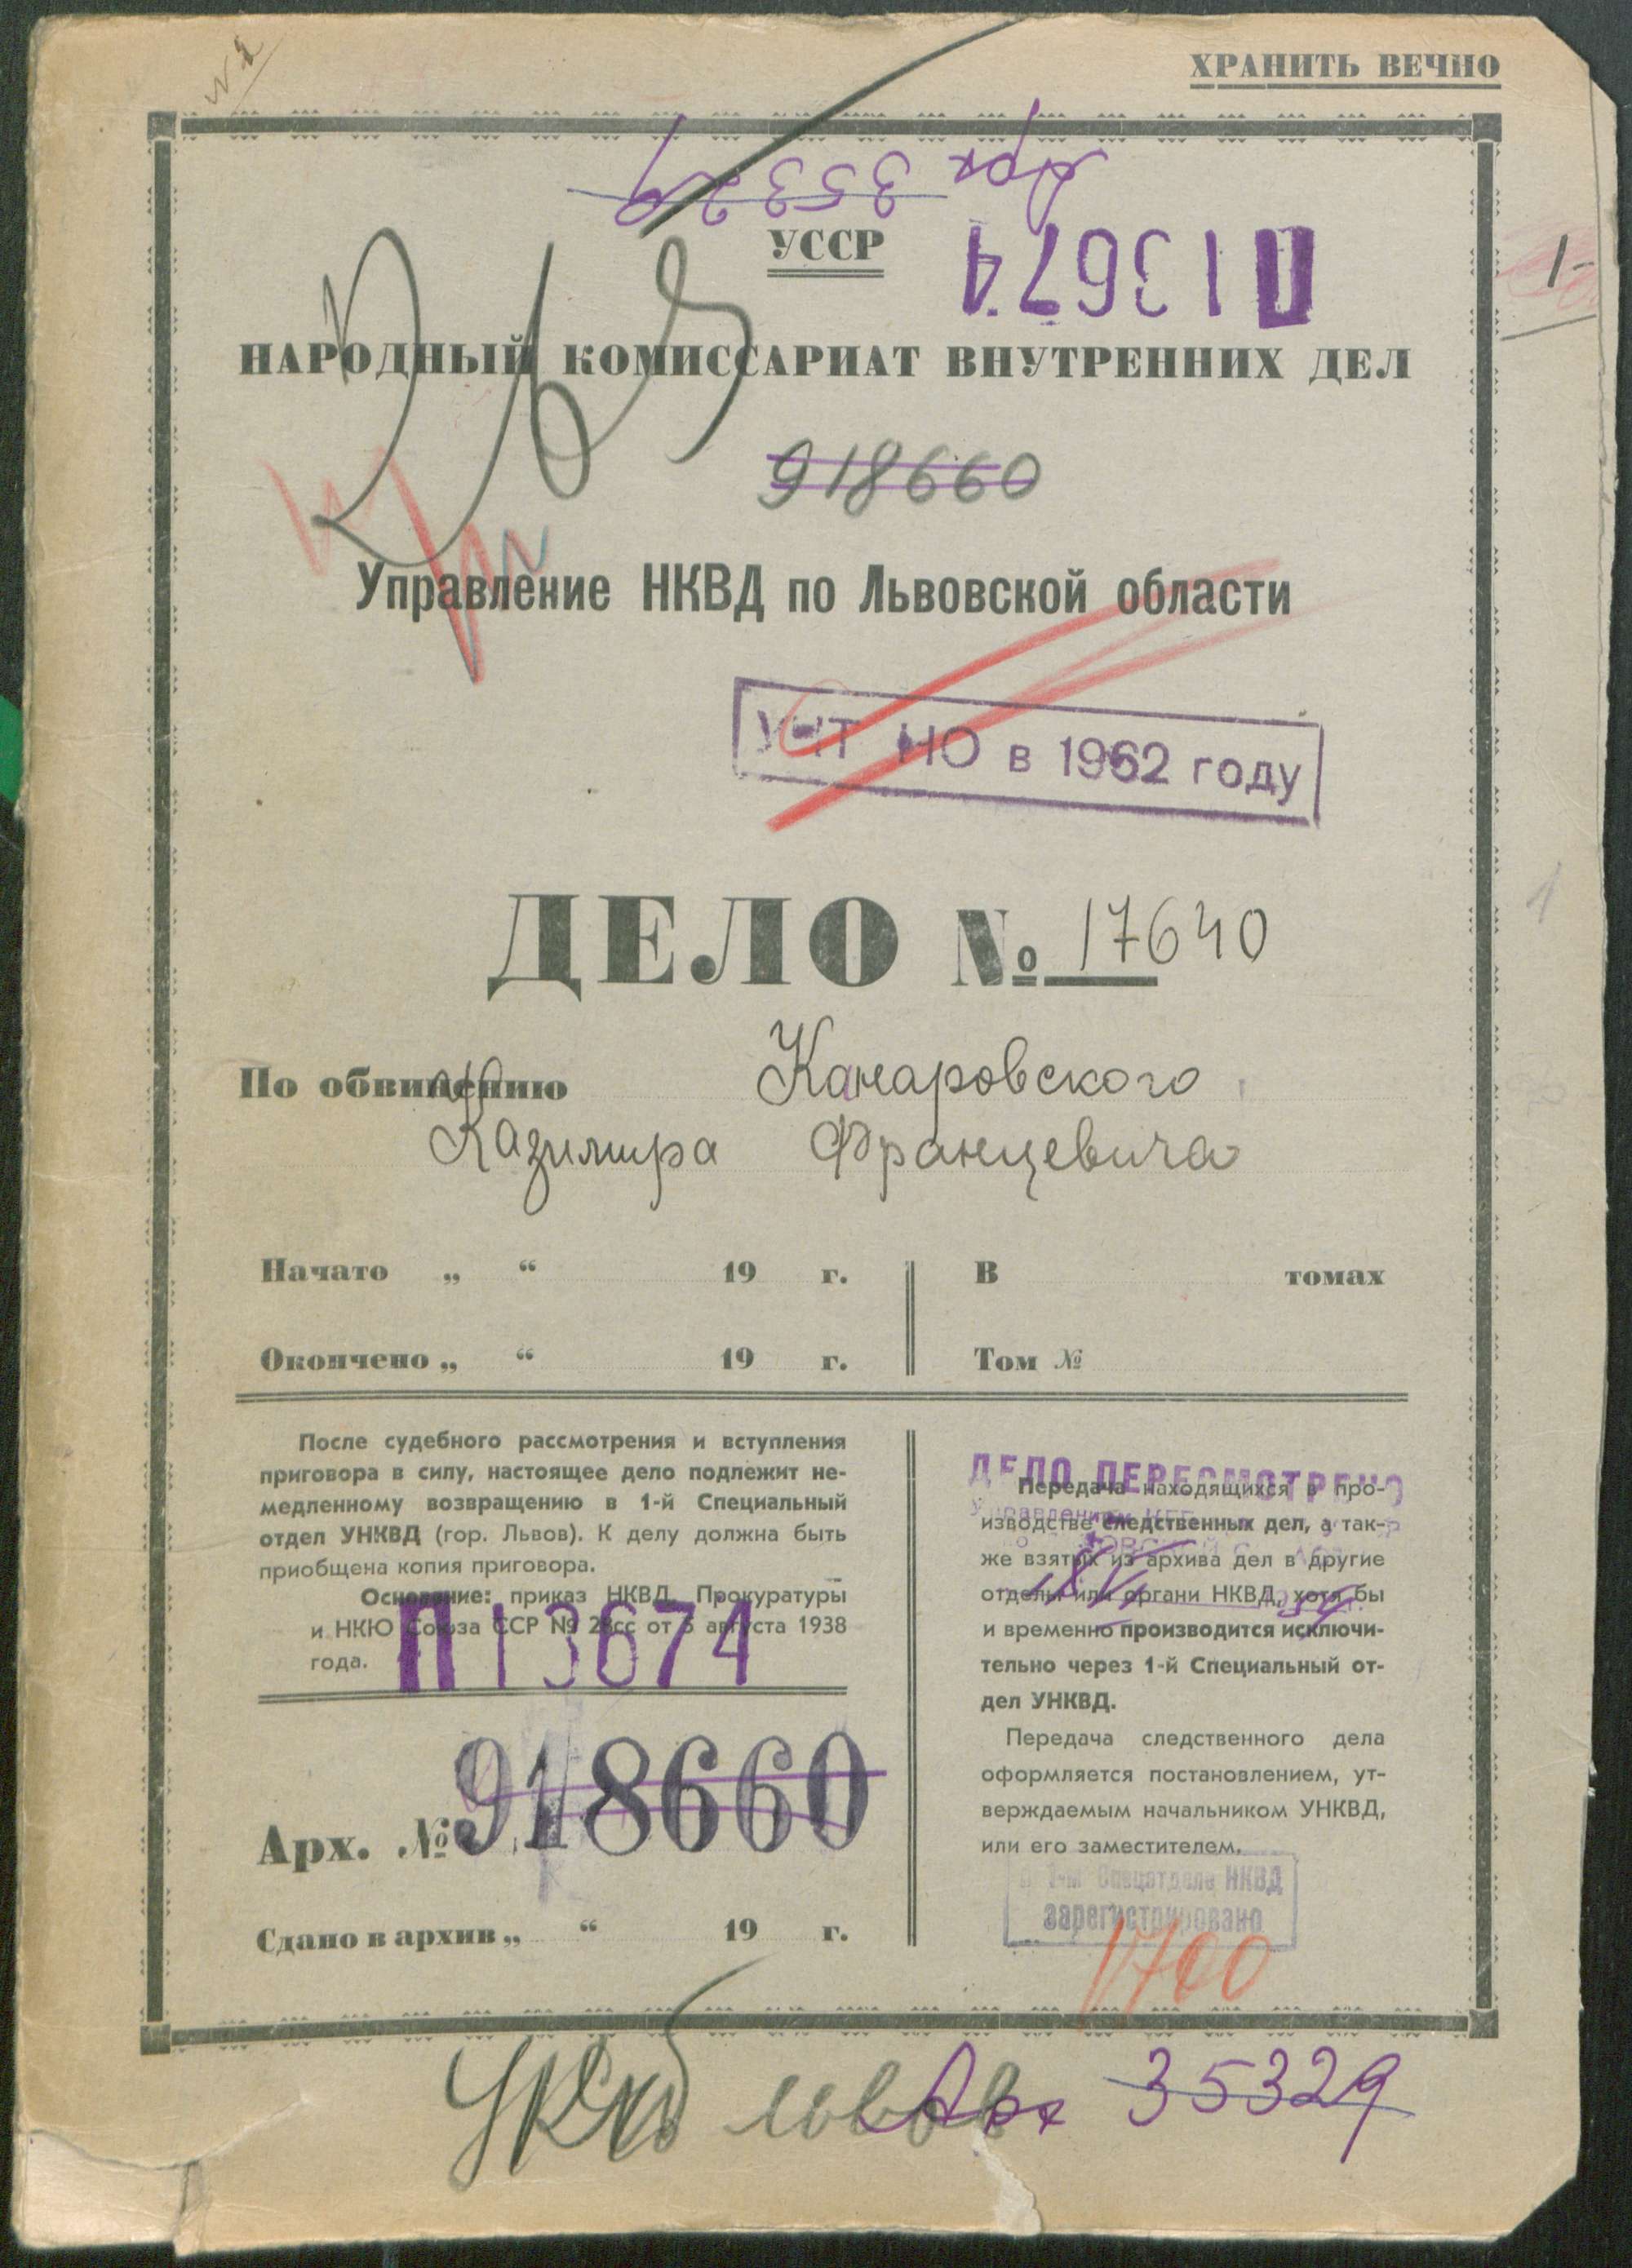 № 2
ХРАНИТЬ ВЕЧНО
Арх 35329
УССР
П13674
1
НАРОДНЫЙ КОМИССАРИАТ ВНУТРЕННИХ ДЕЛ
918660
Управление НКВД по Львовской области
НО в 1962 году
ДЕЛО № 17640
По обвинению
Казимира Францевича
Начато „ “ 19 г. В томах
Окончено „ “ 19 г. Том №
После судебного рассмотрения и вступления
приговора в силу, настоящее дело подлежит не-
медленному возвращению в 1-й Специальный
отдел УНКВД (гор. Львов). К делу должна быть
приобщена копия приговора.
Основание: приказ НКВД, Прокуратуры
и НКЮ Союза ССР № 28сс от 5 августа 1938
года.
П13674
Арх. № 918660
Сдано в архив „ “ 19 г.
ДЕЛО ПЕРЕСМОТРЕНО
Передача находящихся в про-
изводстве следственных дел, а так-
же взятых из архива дел в другие
отделы или органи НКВД, хотя бы
и временно производится исключи-
тельно через 1-й Специальный от-
дел УНКВД.
Передача следственного дела
оформляется постановлением, ут-
верждаемым начальником УНКВД,
или его заместителем.
Спецотделе НКВД
зарегистрировано
1700
Арх 35329